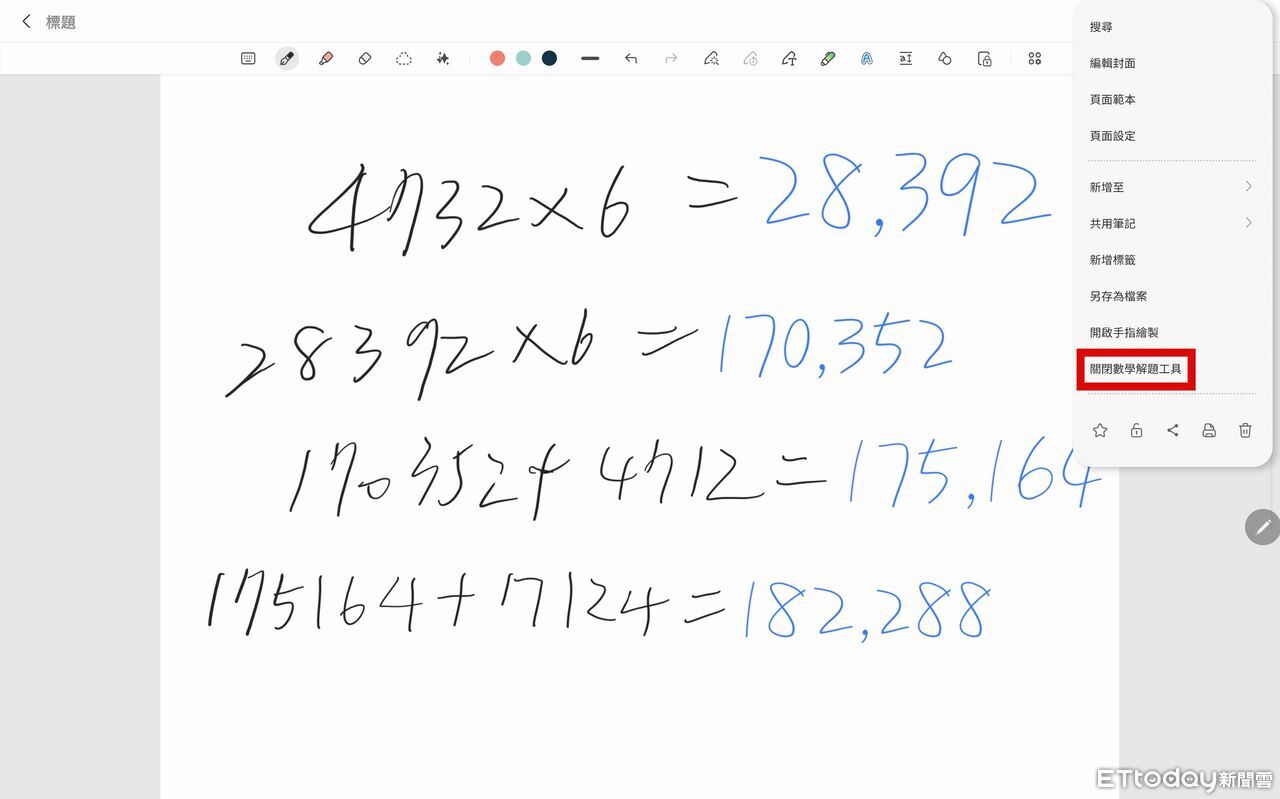 標題
搜尋
編輯封面
頁面範本
頁面設定
新增至
共用筆記
新增標籤
另存為檔案
開啟手指繪製
關閉數學解題工具
4732×6 =28,392
28392×6 =170,352
170352+4712=175,164
175164+7124=182,288
ETtoday新聞雲